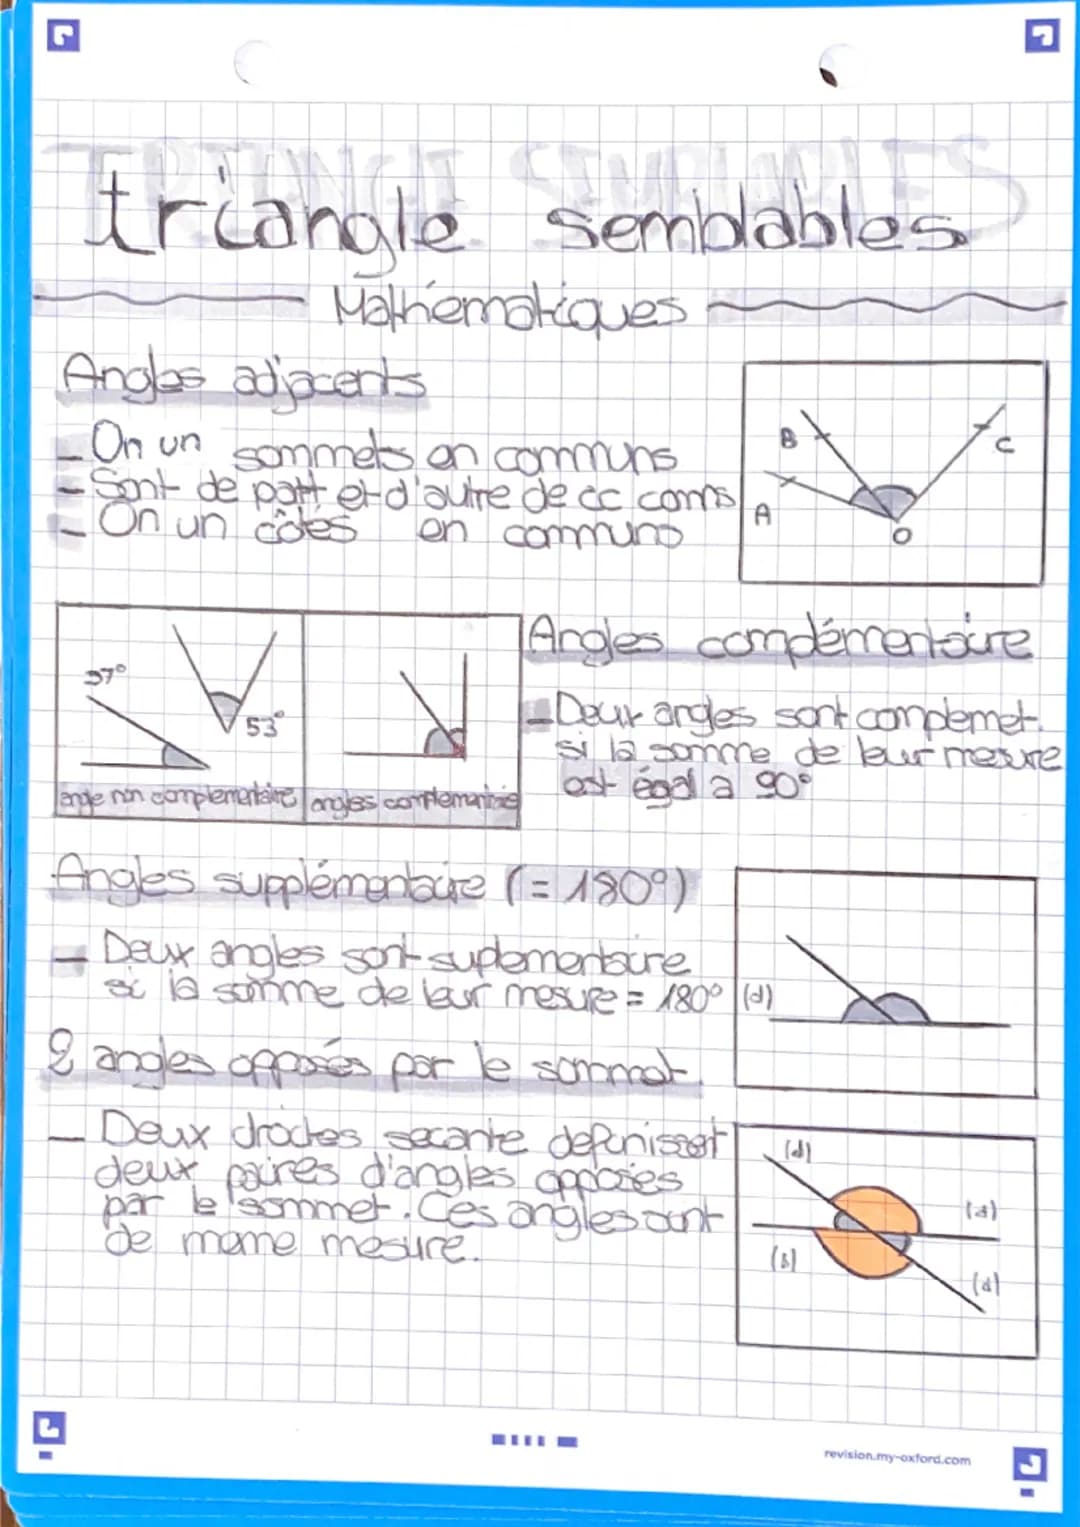 TRIANGLE SEMBLABLES
triangle semblables
Mathématiques
Angles adjacents
- On un sommets en communs
- Sont de part et d'autre de cc comns
- On un côtés en communs
B
C
A
O
37°
53°
angle non complementaire
angles complementaire
Angles complémentaire
- Deux angles sont complemet.
si la somme de leur mesure
est égal a 90°
Angles supplémentaire (= 180°)
- Deux angles sont suplementaire
si la somme de leur mesure = 180°
(d)
2 angles opposés par le sommet
- Deux droites secante definissent
deux paires d'angles opposés
par le sommet. Ces angles sont
de meme mesure.
(d)
(d)
(d)
revision.my-oxford.com